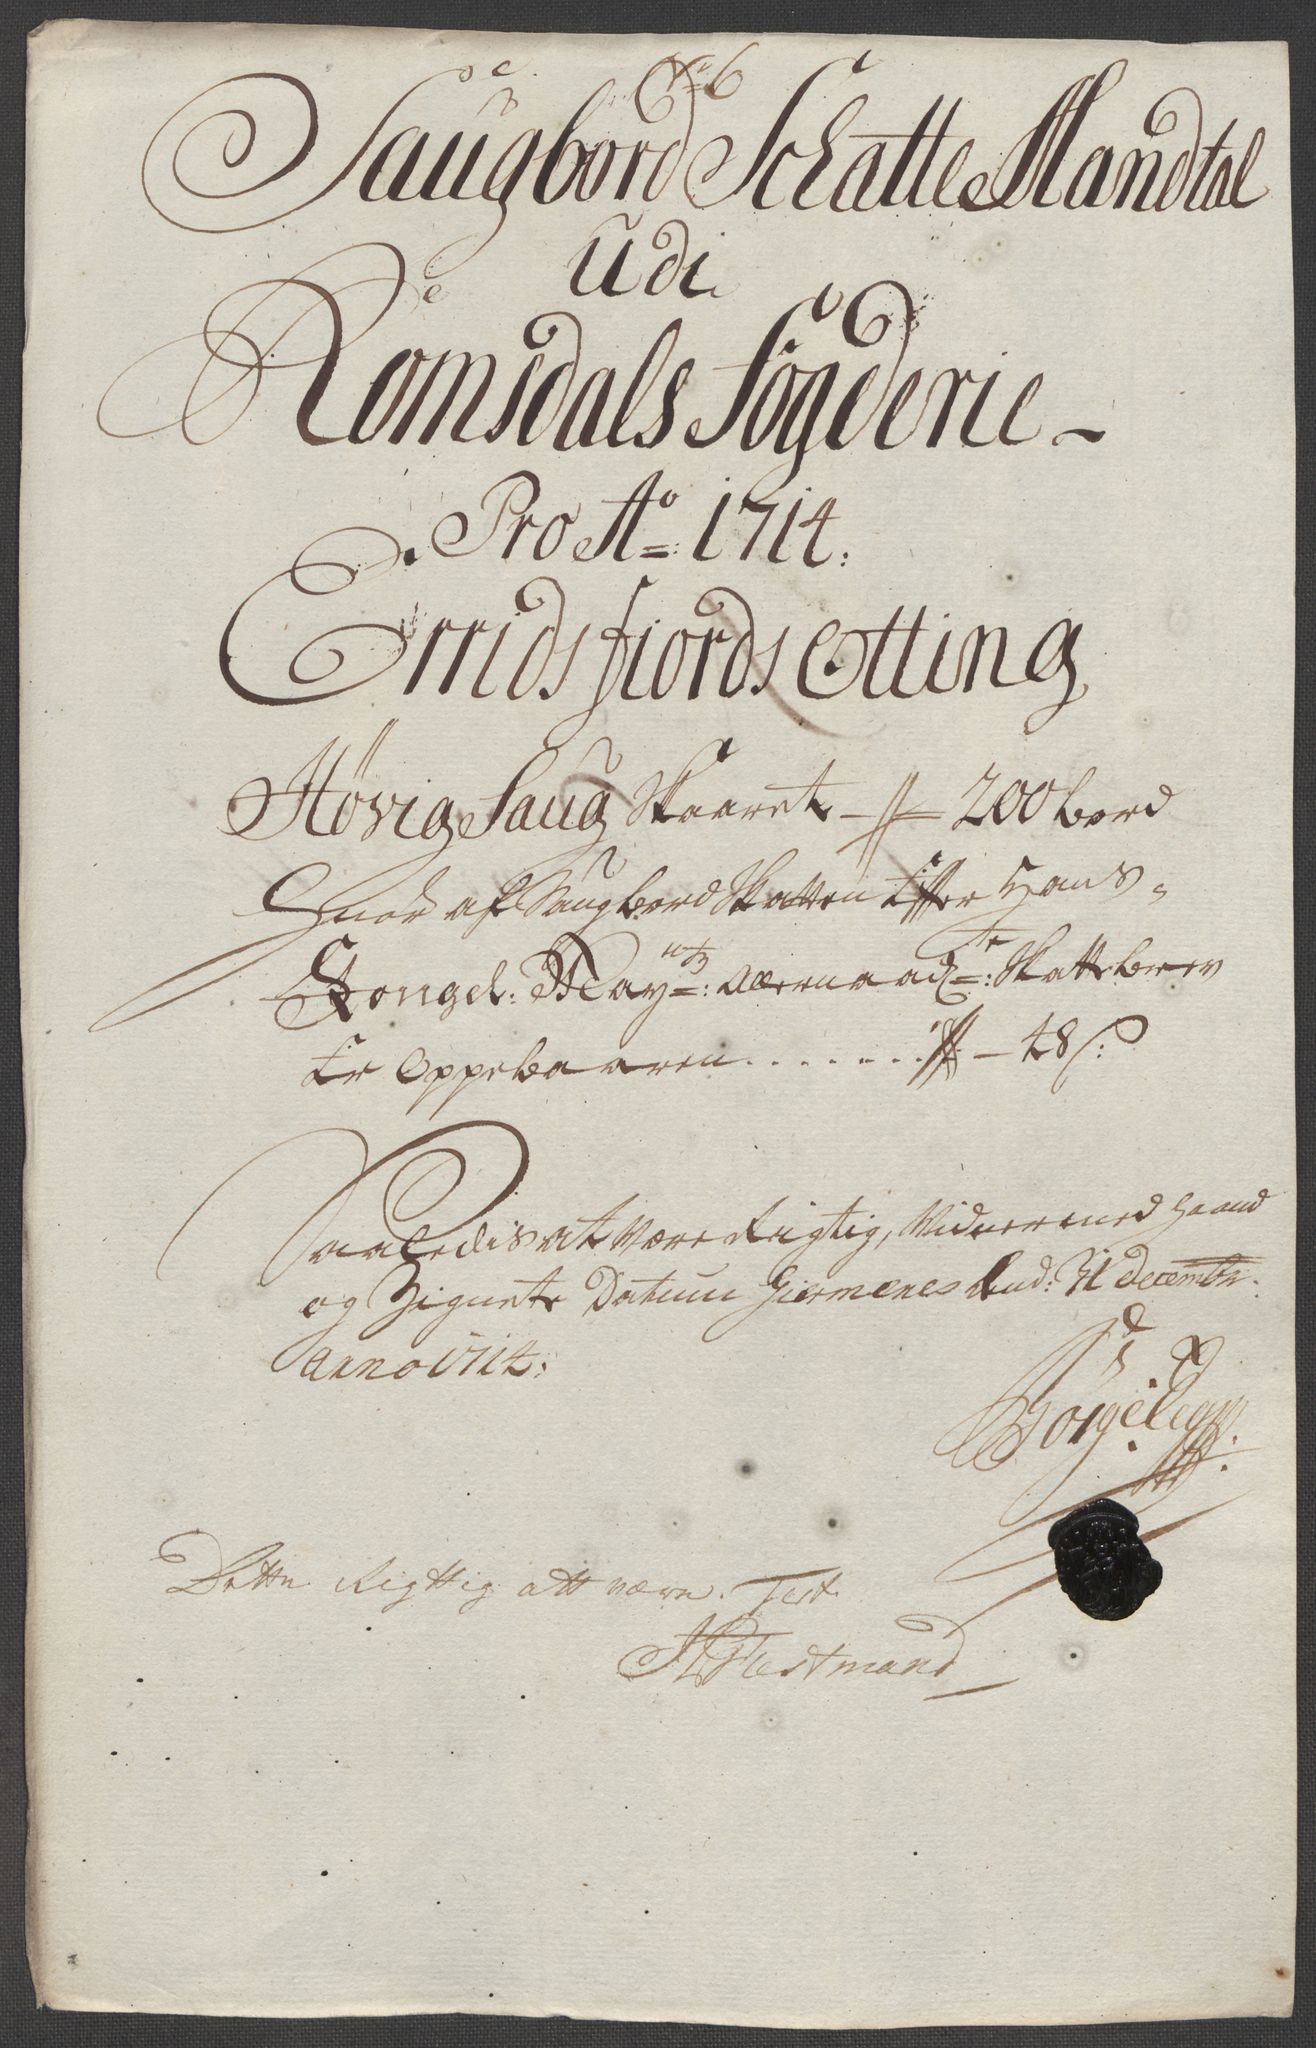 No 6
Saugbord Schatte Mandtal
Udi
Romsdals Fogderie -
Pro Ao 1714:
Erridsfiords Otting
Høvig Saug Skaaret - 200 bord
Huor af Saugbord Skatten Effter Hans
Kongel: Maytz: allernaadste: Skattebrev
Er Oppebaaren . . . . . . . . - 48 s:
Saaledis at Være Rigtig, Vidner med Haand
og Zignete Datum Giermenes d. 31 decembr.
Anno 1714:
Dette Rigttig att være. Test
Festmand